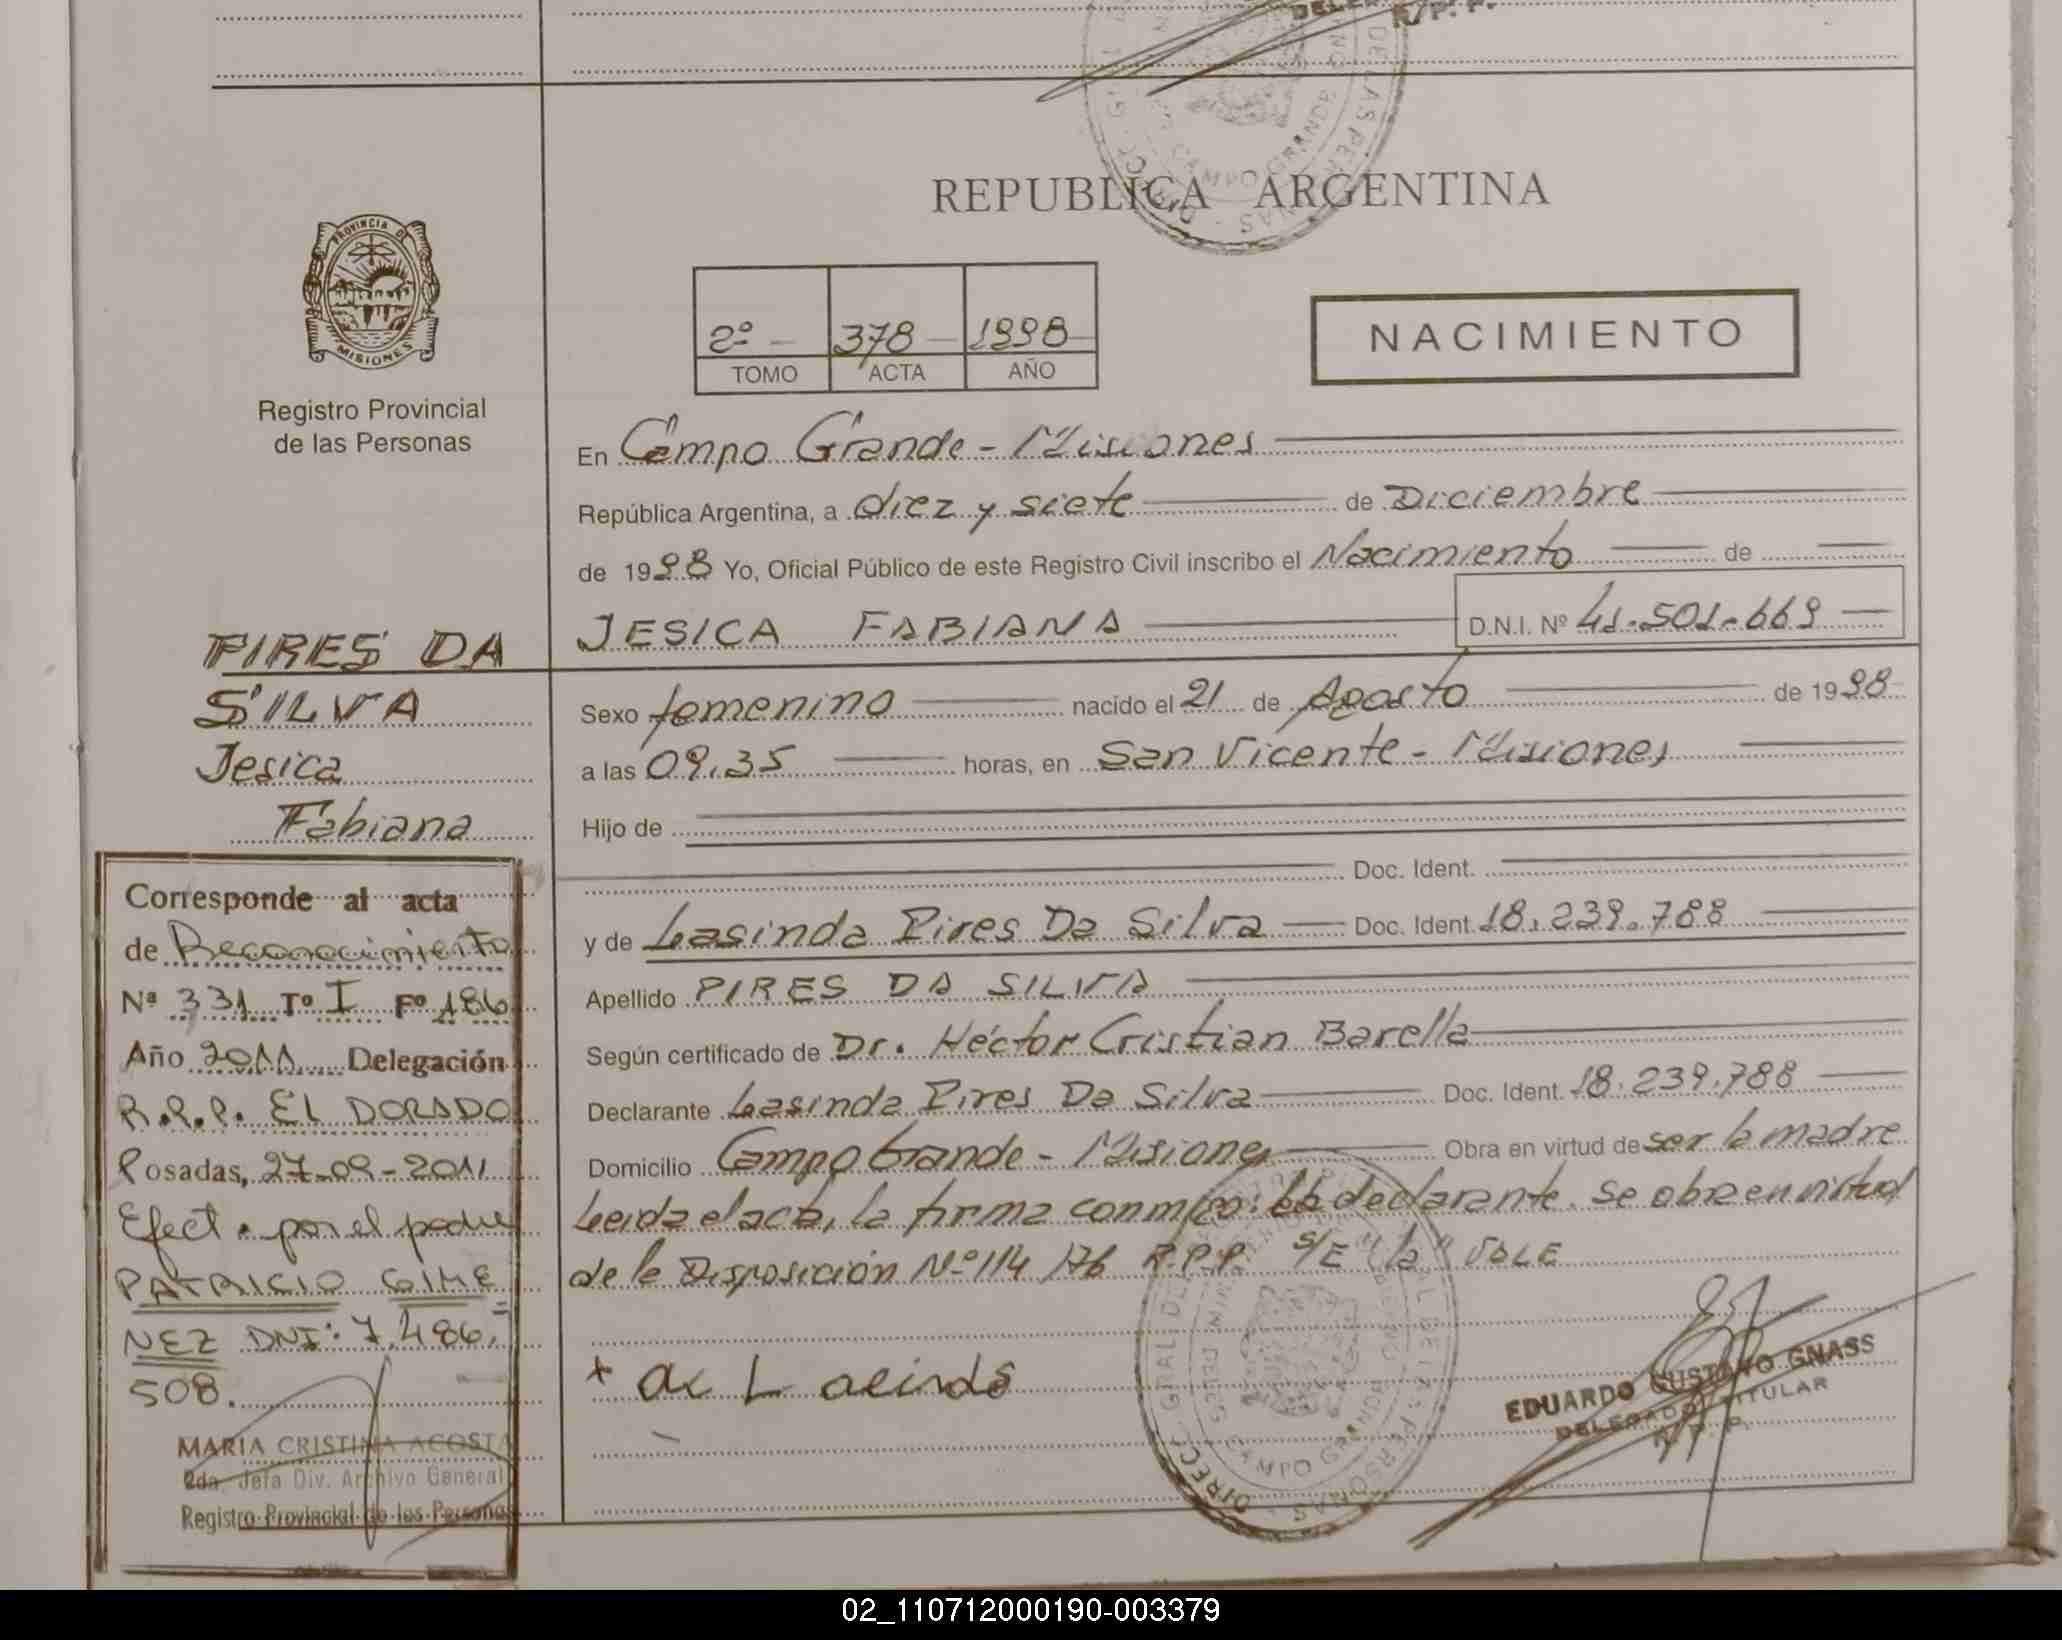 REPUBLICA ARGENTINA
PROVINCIA DE
MISIONES
Registro Provincial
de las Personas
2º 378 1998
TOMO ACTA AÑO
NACIMIENTO
En Campo Grande - Misiones
República Argentina, a diez y siete de Diciembre
de 1998 Yo, Oficial Público de este Registro Civil inscribo el Nacimiento de
JESICA FABIANA D.N.I. Nº 41.501.669
Sexo femenino nacido el 21 de Agosto de 1998
a las 09.35 horas, en San Vicente - Misiones
Hijo de
Doc. Ident.
y de Lasinda Pires Da Silva Doc. Ident. 18.239.788
Apellido PIRES DA SILVA
Según certificado de Dr. Héctor Cristian Barella
Declarante Lasinda Pires Da Silva Doc. Ident. 18.239.788
Domicilio Campo Grande - Misiones Obra en virtud de ser la madre
Leida el acta, la firma conmigo: declarante. Se obra en virtud
de la Disposición Nº 114/76 R.P.P. S/E "la" VALE
EDUARDO GUSTAVO GNASS
DELEGADO TITULAR
R.P.P.
DIRECC. GRAL. DE LAS PERSONAS
CAMPO GRANDE
PIRES DA
SILVA
Jesica
Fabiana
Corresponde al acta
de Reconocimiento
Nº 331 Tº I Fº 186
Año 2011 Delegación
R.P.P. EL DORADO
Posadas, 27-09-2011
Efect. por el padre
PATRICIO GIME
NEZ DNI: 7.486.
508.
MARIA CRISTINA ACOSTA
2da. Jefa Div. Archivo General
Registro Provincial de las Personas
02_110712000190-003379